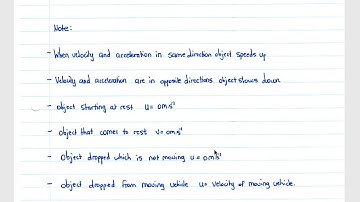 Note:
- When velocity and acceleration in same direction object speeds up
- Velocity and acceleration are in opposite directions object slows down
- object starting at rest u = 0ms⁻¹
- object that comes to rest v = 0ms⁻¹
- Object dropped which is not moving u = 0ms⁻¹
- object dropped from moving vehicle u = velocity of moving vehicle.